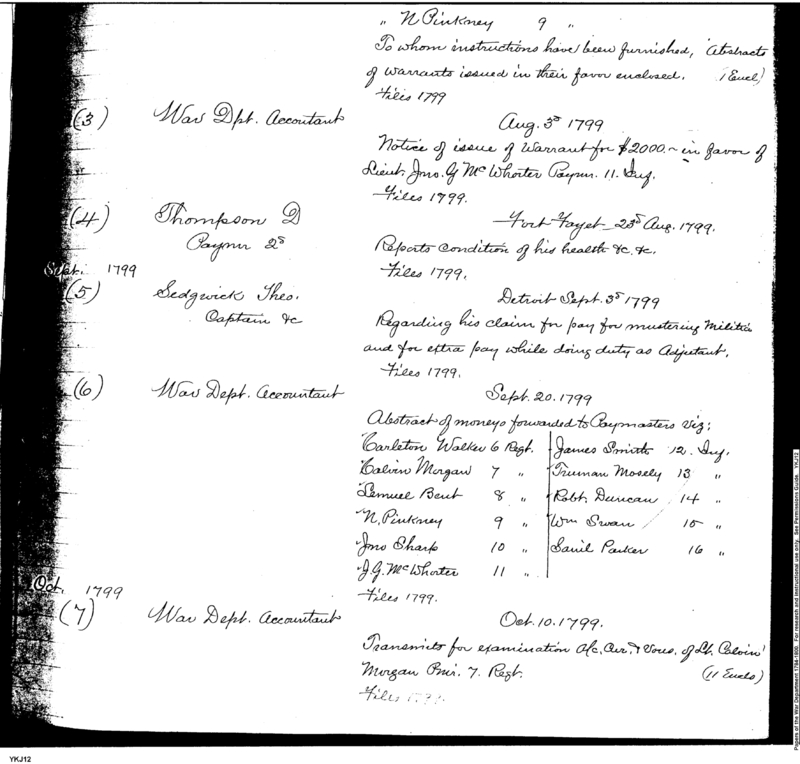 „ N Pinkney 9 „
To whom instructions have been furnished, Abstracts
of warrants issued in their favor enclosed. (1 Encl)
Files 1799
(3) War Dpt. Accountant
Aug. 3d 1799
Notice of issue of Warrant for $2000.~ in favor of
Lieut. Jno. G McWhorter Paymr. 11. Inf.
Files 1799.
(4) Thompson D
Paymr 2d
Fort Fayet 23d Aug. 1799.
Reports condition of his health &c. &c.
Files 1799.
Sept. 1799
(5) Sedgwick Theo.
Captain &c
Detroit Sept. 3d 1799
Regarding his claim for pay for mustering Militia
and for extra pay while doing duty as Adjutant.
Files 1799.
(6) War Dept. Accountant
Sept. 20. 1799
Abstract of moneys forwarded to Paymasters Viz:
Carleton Walker 6 Regt. James Smith 12. Inf.
Calvin Morgan 7 „ Truman Mosely 13 „
Lemuel Bent 8 „ Robt. Duncan 14 „
N. Pinkney 9 „ Wm Swan 15 „
Jno Sharp 10 „ Saml Parker 16 „
J.G. McWhorter 11 „
Files 1799.
Oct. 1799
(7) War Dept. Accountant
Oct. 10. 1799.
Transmits for examination A/c. Cur. & Vous. of Lt. Calvin
Morgan Pmr. 7. Regt. (11 Encls)
Files 1799.
YKJ12
Papers of the War Department 1784-1800. For research and instructional use only. See Permissions Guide. YKJ12